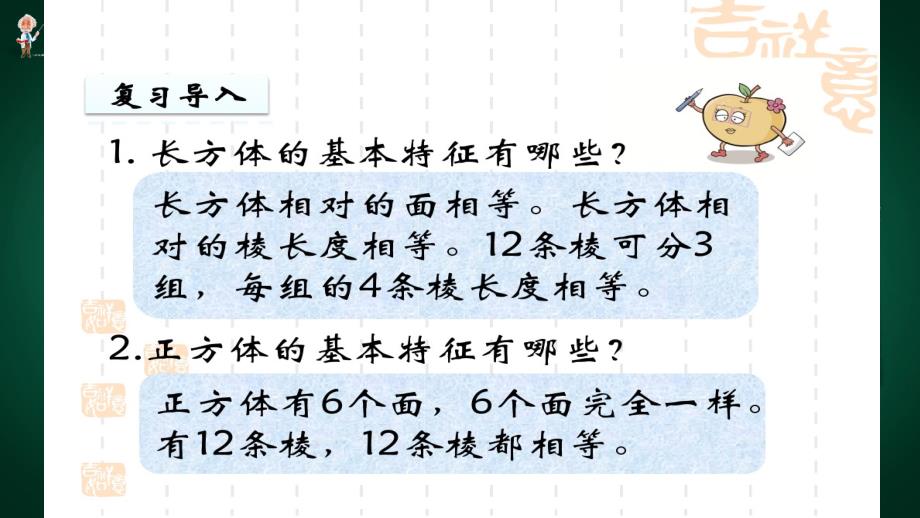 吉祥如意
复习导入
1. 长方体的基本特征有哪些？
长方体相对的面相等。长方体相
对的棱长度相等。12条棱可分3
组，每组的4条棱长度相等。
2.正方体的基本特征有哪些？
正方体有6个面，6个面完全一样。
有12条棱，12条棱都相等。
吉祥如意
吉祥如意
吉祥如意
吉祥如意